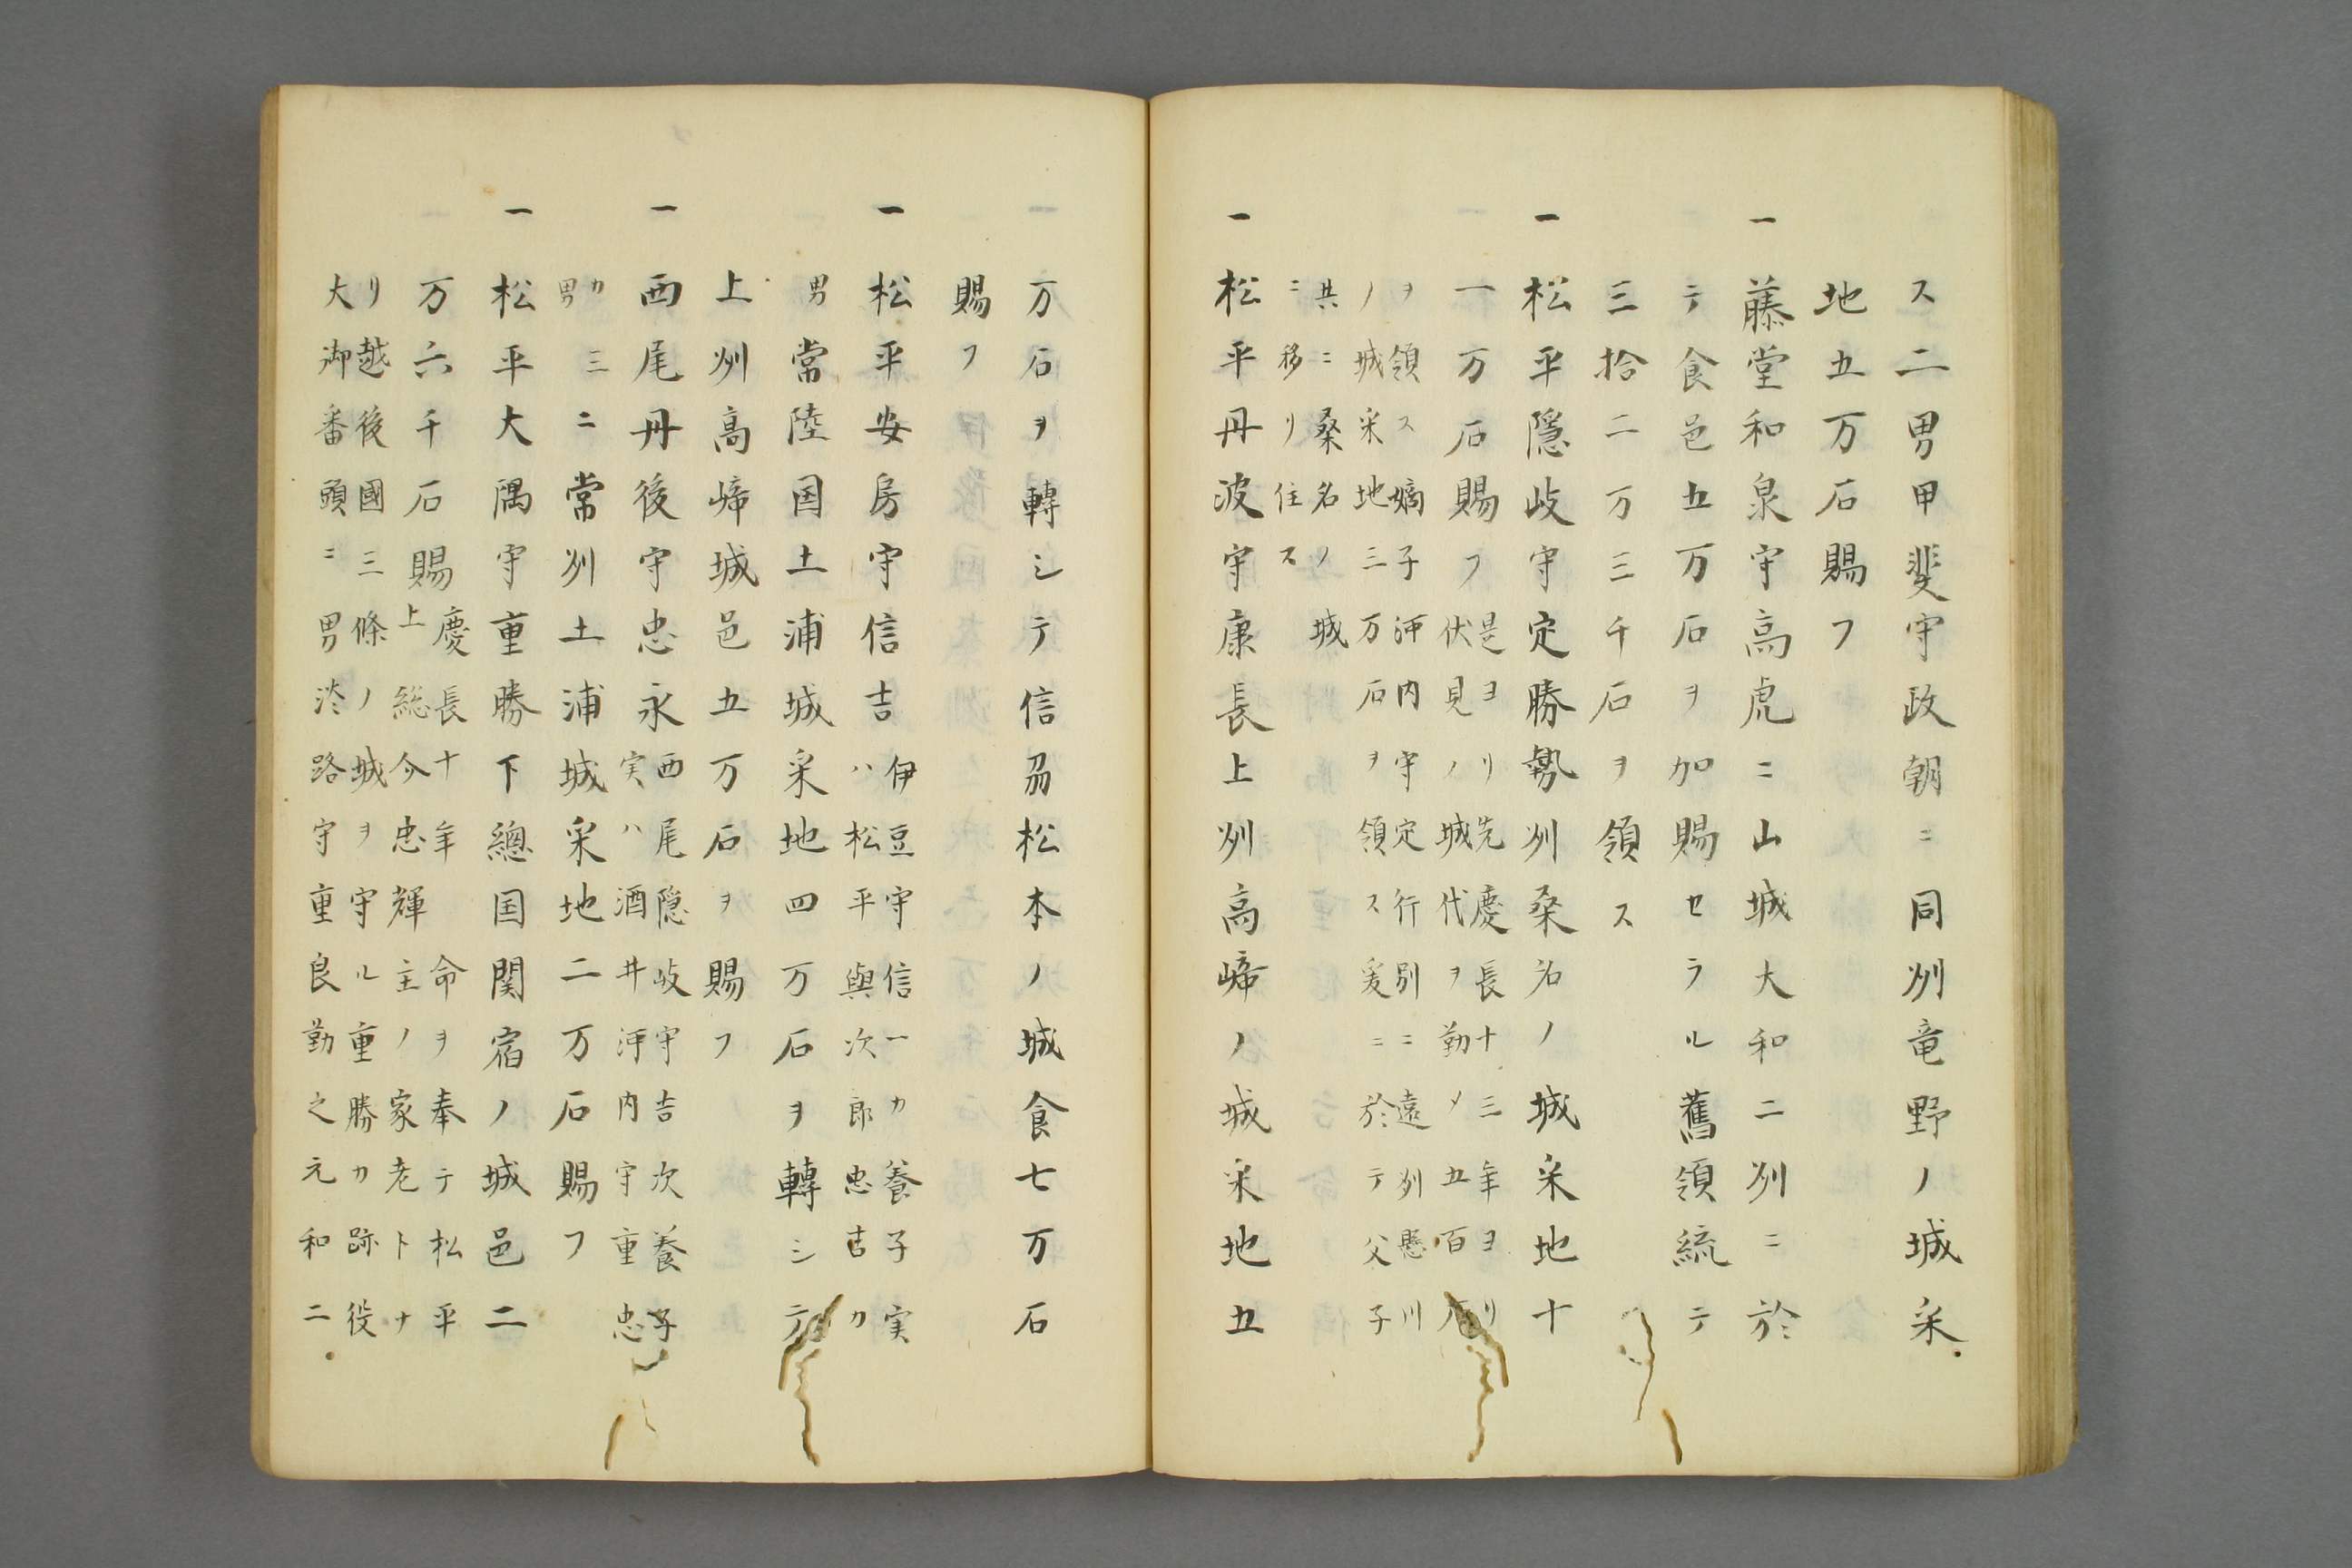 ス二男甲斐守政朝ニ同州竜野ノ城采
地五万石賜フ
一藤堂和泉守高虎ニ山城大和二州ニ於
テ食邑五万石ヲ加賜セラル舊領統テ
三拾二万三千石ヲ領ス
一松平隠岐守定勝勢州桑名ノ城采地十
一万石賜フ
是ヨリ先慶長十三年ヨリ
伏見ノ城代ヲ勤メ五百石
ヲ領ス嫡子河内守定行別ニ遠州懸川
ノ城采地三万石ヲ領ス爰ニ於テ父子
共ニ桑名ノ城
ニ移リ住ス
一松平丹波守康長上州高崎ノ城采地五
万石ヲ轉シテ信刕松本ノ城食七万石
賜フ
一松平安房守信吉
伊豆守信一カ養子実
ハ松平與次郎忠吉カ
男常陸国土浦城采地四万石ヲ轉シテ
上州高崎城邑五万石ヲ賜フ
一西尾丹後守忠永
西尾隠岐守吉次養子
実ハ酒井河内守重忠
カ三
男
ニ常州土浦城采地二万石賜フ
一松平大隅守重勝下總国関宿ノ城邑二
万六千石賜
慶長十年命ヲ奉テ松平
上総介忠輝主ノ家老トナ
リ越後國三條ノ城ヲ守ル重勝カ跡役
大御番頭ニ男淡路守重良勤之元和二